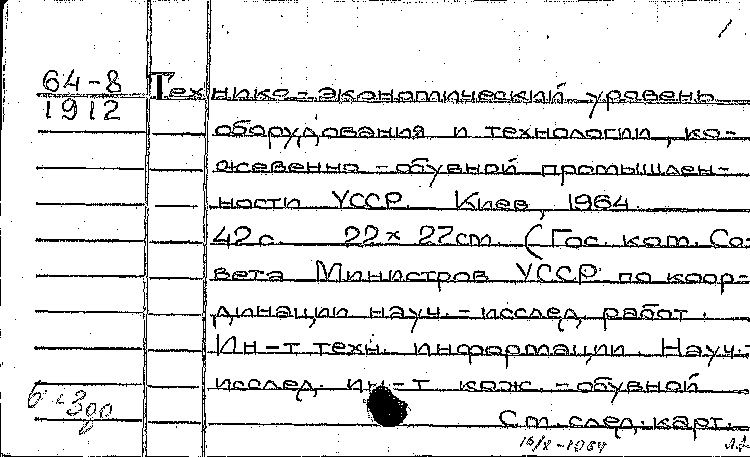 64-8
1912
Технико-экономический уровень
оборудования и технологии, ко-
жевенно-обувной промышлен-
ности УССР. Киев, 1964.
42 с. 22 × 27 cm. (Гос. ком. Со-
вета Министров УССР по коор-
динации науч.-исслед. работ.
Ин-т техн. информации. Науч.-
исслед. ин-т кож.-обувной
См. след. карт.